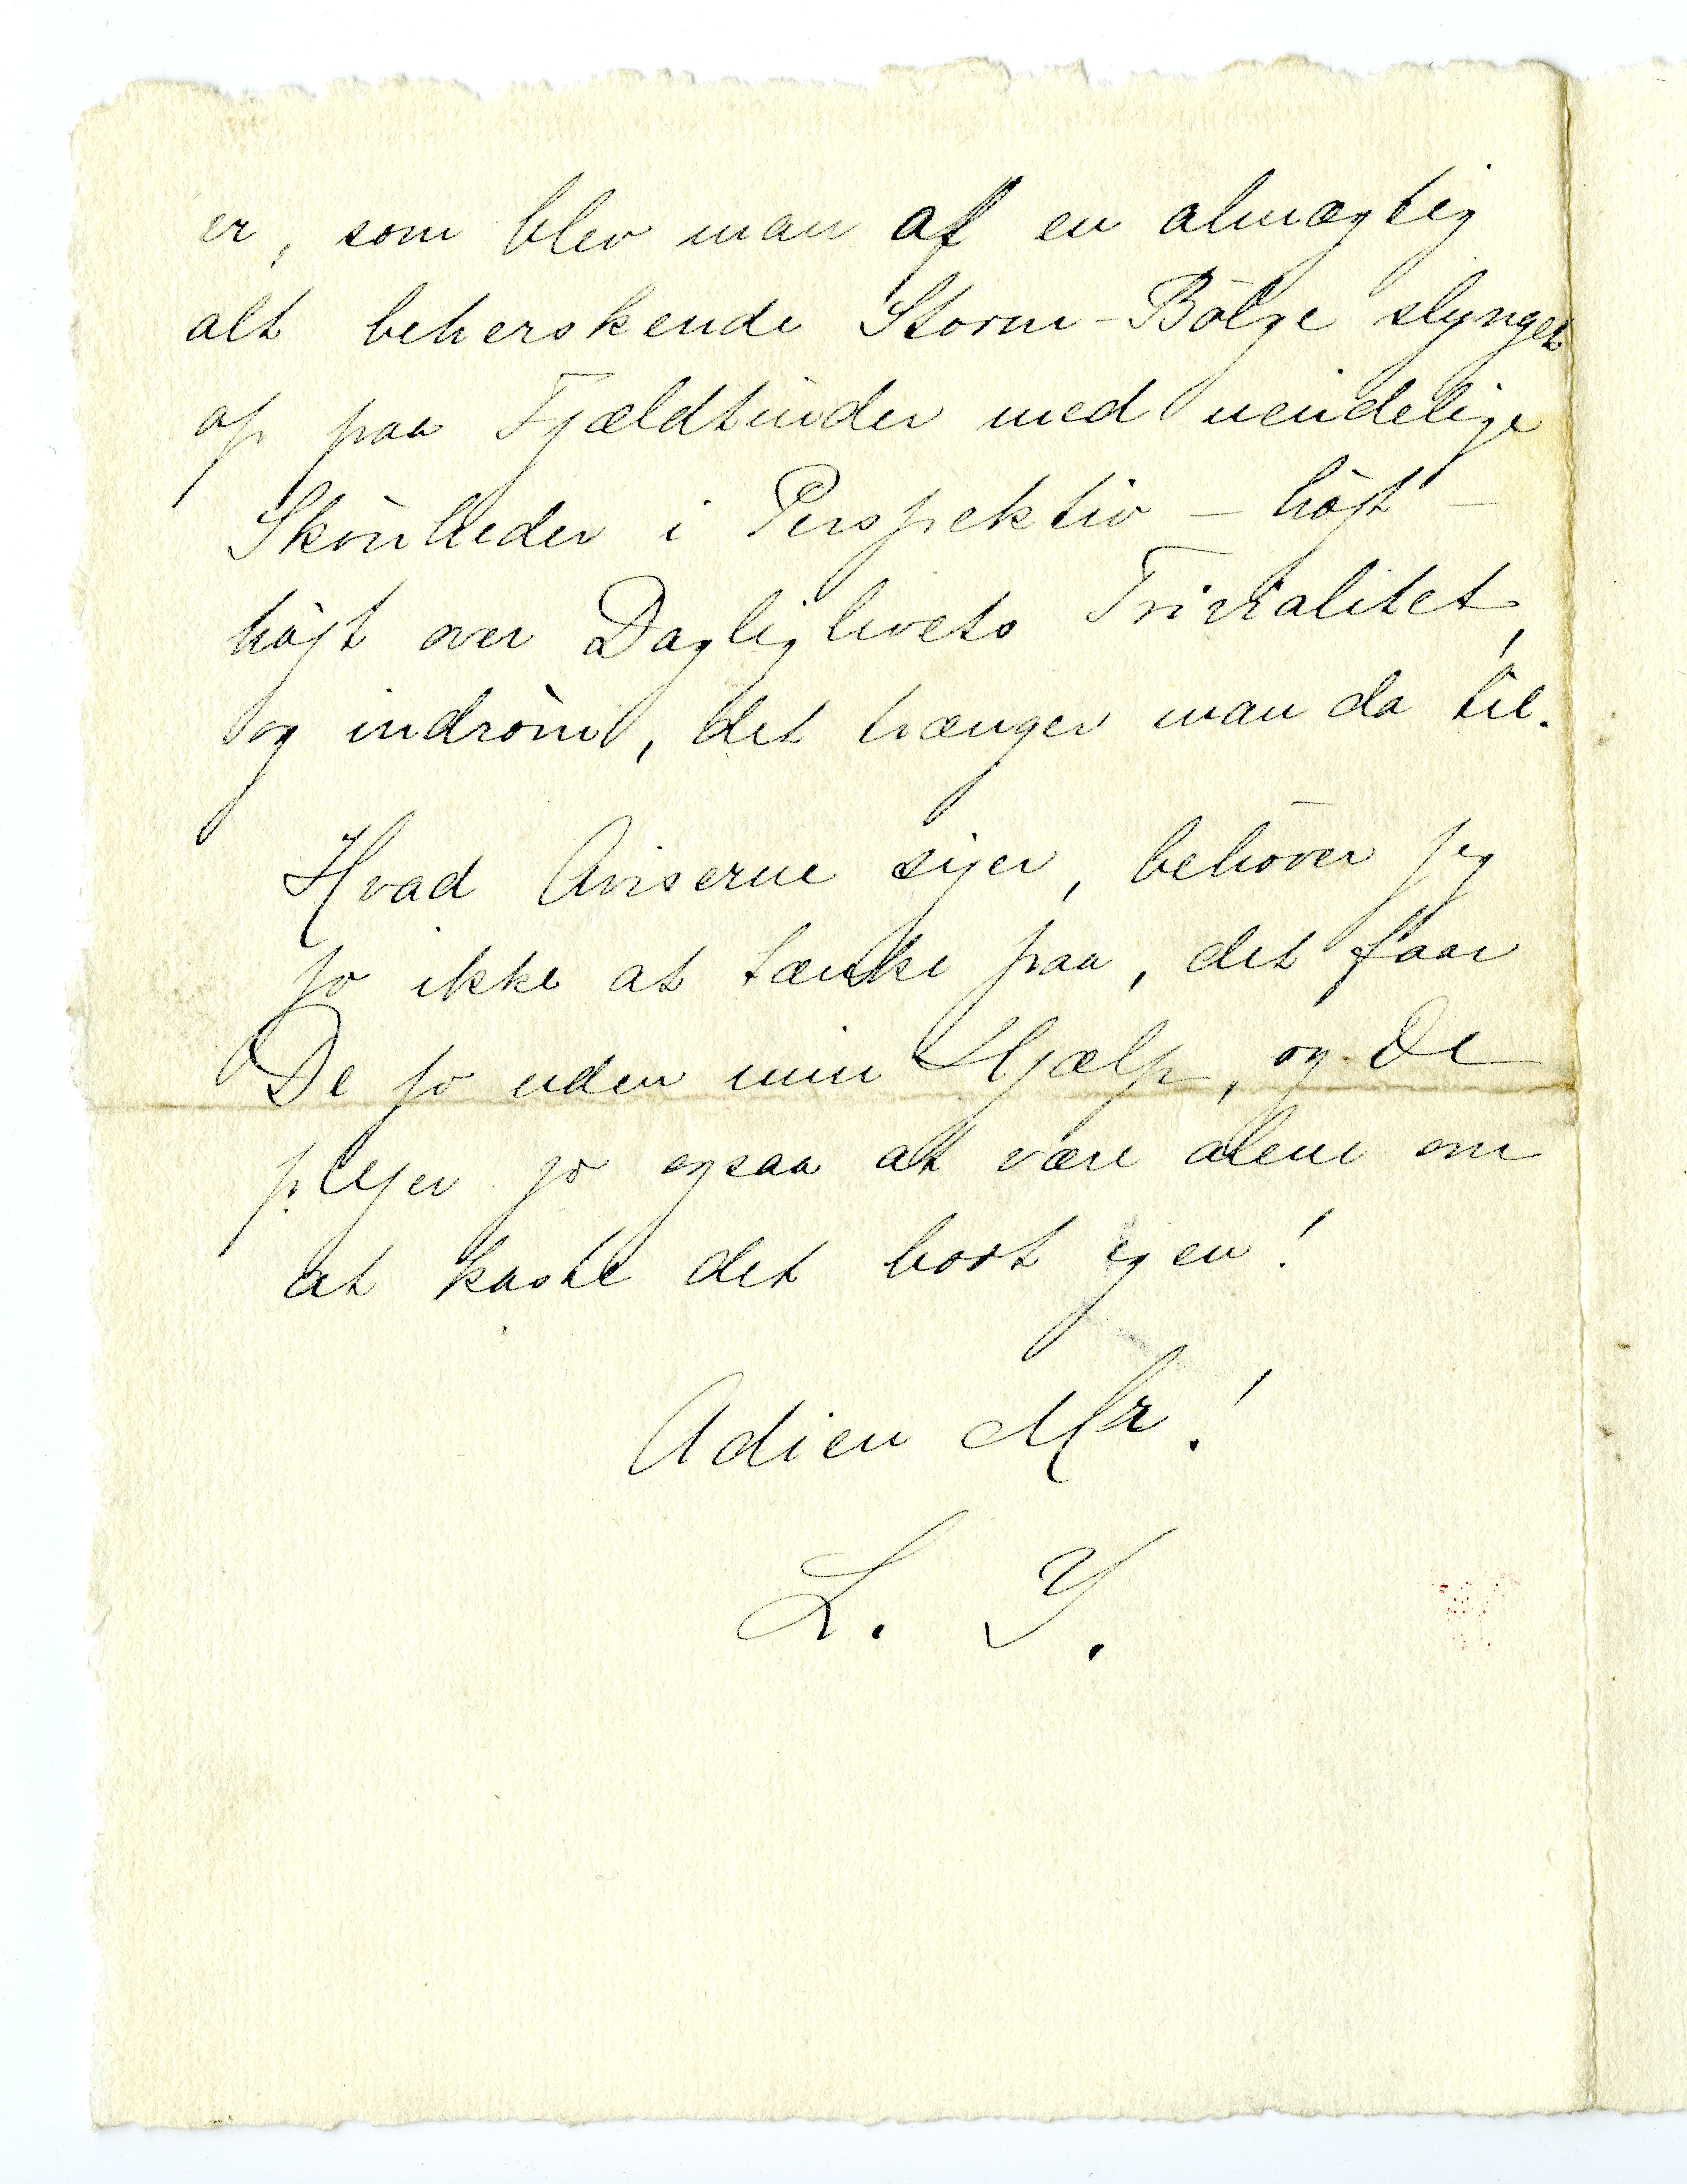 er, som blev man af en almægtig
alt beherskende Storm-Bölge slynget
op paa Fjældtinder med uendelige
Skönheder i Perspektiv – höjt –
höjt over Dagliglivets Trivialitet,
og indröm, det trænger man da til.
Hvad Aviserne siger, behöver jeg
jo ikke at tænke paa, det faar
De jo uden min Hjælp, og De
plejer jo ogsaa at være alene om
at kaste det bort igen!
Adieu Mr!
L. Y.